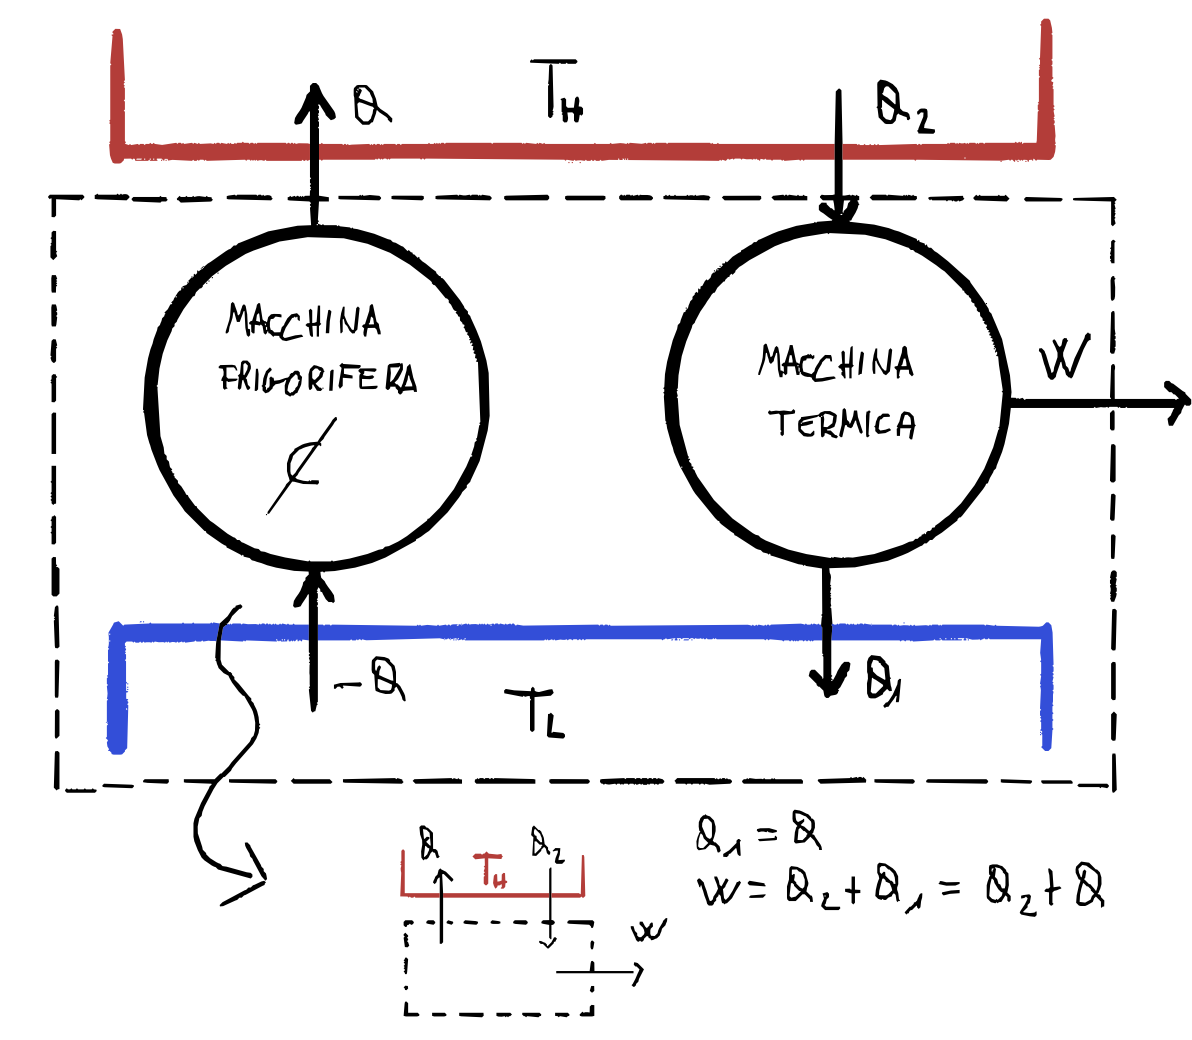 T_H
Q
Q_2
MACCHINA
FRIGORIFERA
₵
MACCHINA
TERMICA
W
-Q
T_L
Q_1
Q_1 = Q
W = Q_2 + Q_1 = Q_2 + Q
Q
T_H
Q_2
W